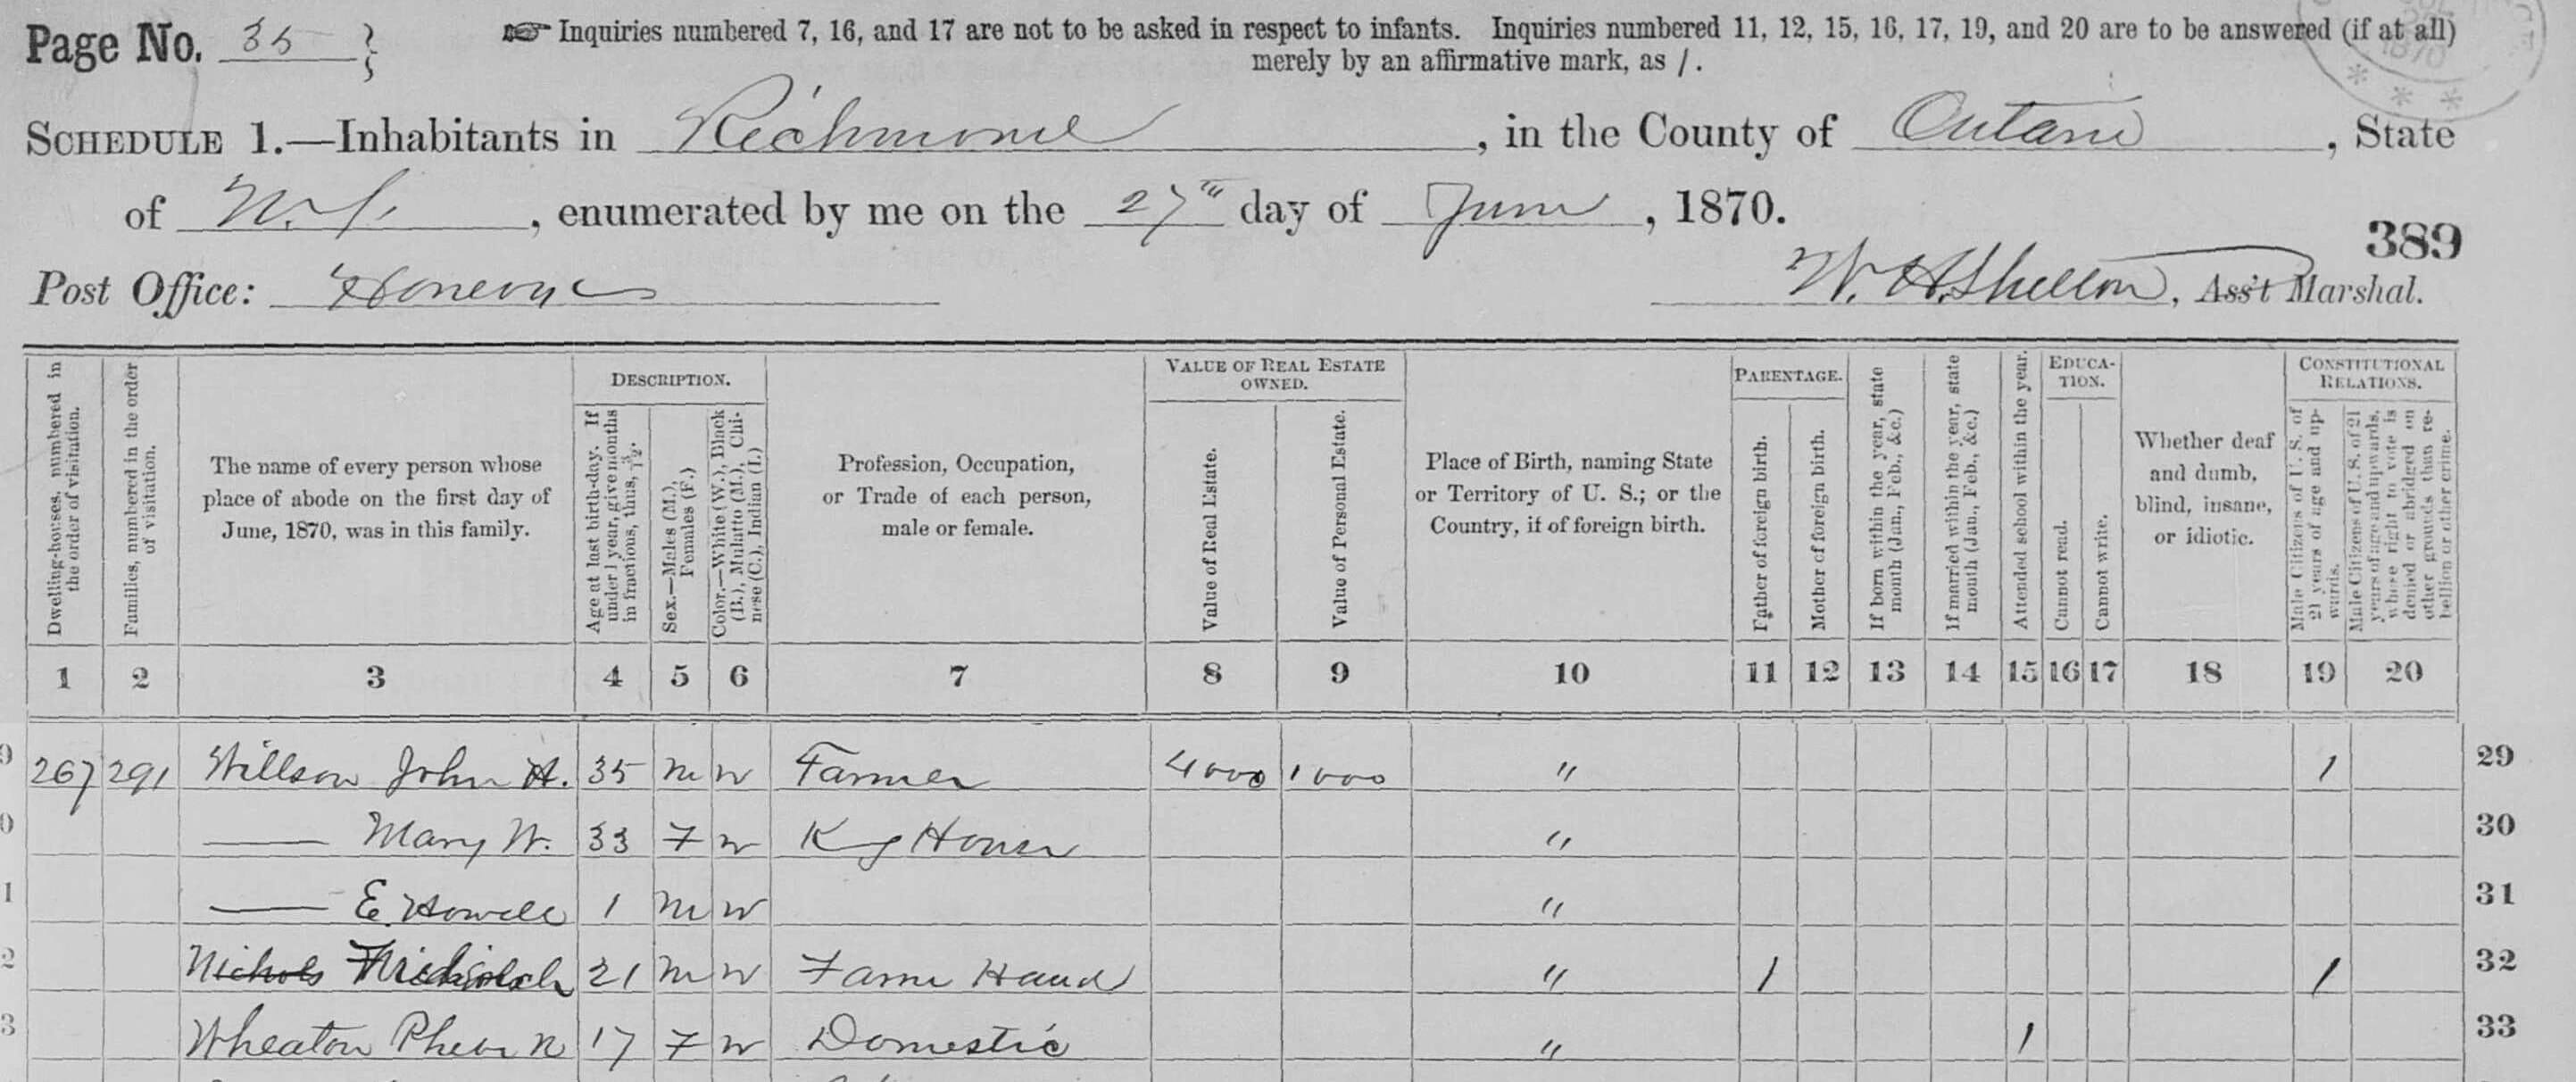 Page No. 35
☞ Inquiries numbered 7, 16, and 17 are not to be asked in respect to infants. Inquiries numbered 11, 12, 15, 16, 17, 19, and 20 are to be answered (if at all)
merely by an affirmative mark, as /.
1870
* * *
SCHEDULE 1.—Inhabitants in Richmond, in the County of Ontario, State
of N.Y., enumerated by me on the 27th day of June, 1870.
389
Post Office: Honeoye
W. H. Shelton, Ass't Marshal.
Dwelling-houses, numbered in the order of visitation.
Families, numbered in the order of visitation.
The name of every person whose place of abode on the first day of June, 1870, was in this family.
DESCRIPTION.
Age at last birth-day. If under 1 year, give months in fractions, thus, 3/12.
Sex.—Males (M.), Females (F.)
Color.—White (W.), Black (B.), Mulatto (M.), Chinese (C.), Indian (I.)
Profession, Occupation, or Trade of each person, male or female.
VALUE OF REAL ESTATE OWNED.
Value of Real Estate.
Value of Personal Estate.
Place of Birth, naming State or Territory of U. S.; or the Country, if of foreign birth.
PARENTAGE.
Father of foreign birth.
Mother of foreign birth.
If born within the year, state month (Jan., Feb., &c.)
If married within the year, state month (Jan., Feb., &c.)
Attended school within the year.
EDUCATION.
Cannot read.
Cannot write.
Whether deaf and dumb, blind, insane, or idiotic.
CONSTITUTIONAL RELATIONS.
Male Citizens of U. S. of 21 years of age and upwards.
Male Citizens of U. S. of 21 years of age and upwards, whose right to vote is denied or abridged on other grounds than rebellion or other crime.
1 2 3 4 5 6 7 8 9 10 11 12 13 14 15 16 17 18 19 20
9 267 291 Willson John H. 35 M W Farmer 4000 1000 " 1 29
0 —— Mary W. 33 F W Kg House " 30
1 —— E. Howell 1 M W " 31
2 Nichols 21 M W Farm Hand " 1 1 32
3 Wheaton Phebe N 17 F W Domestic " 1 33